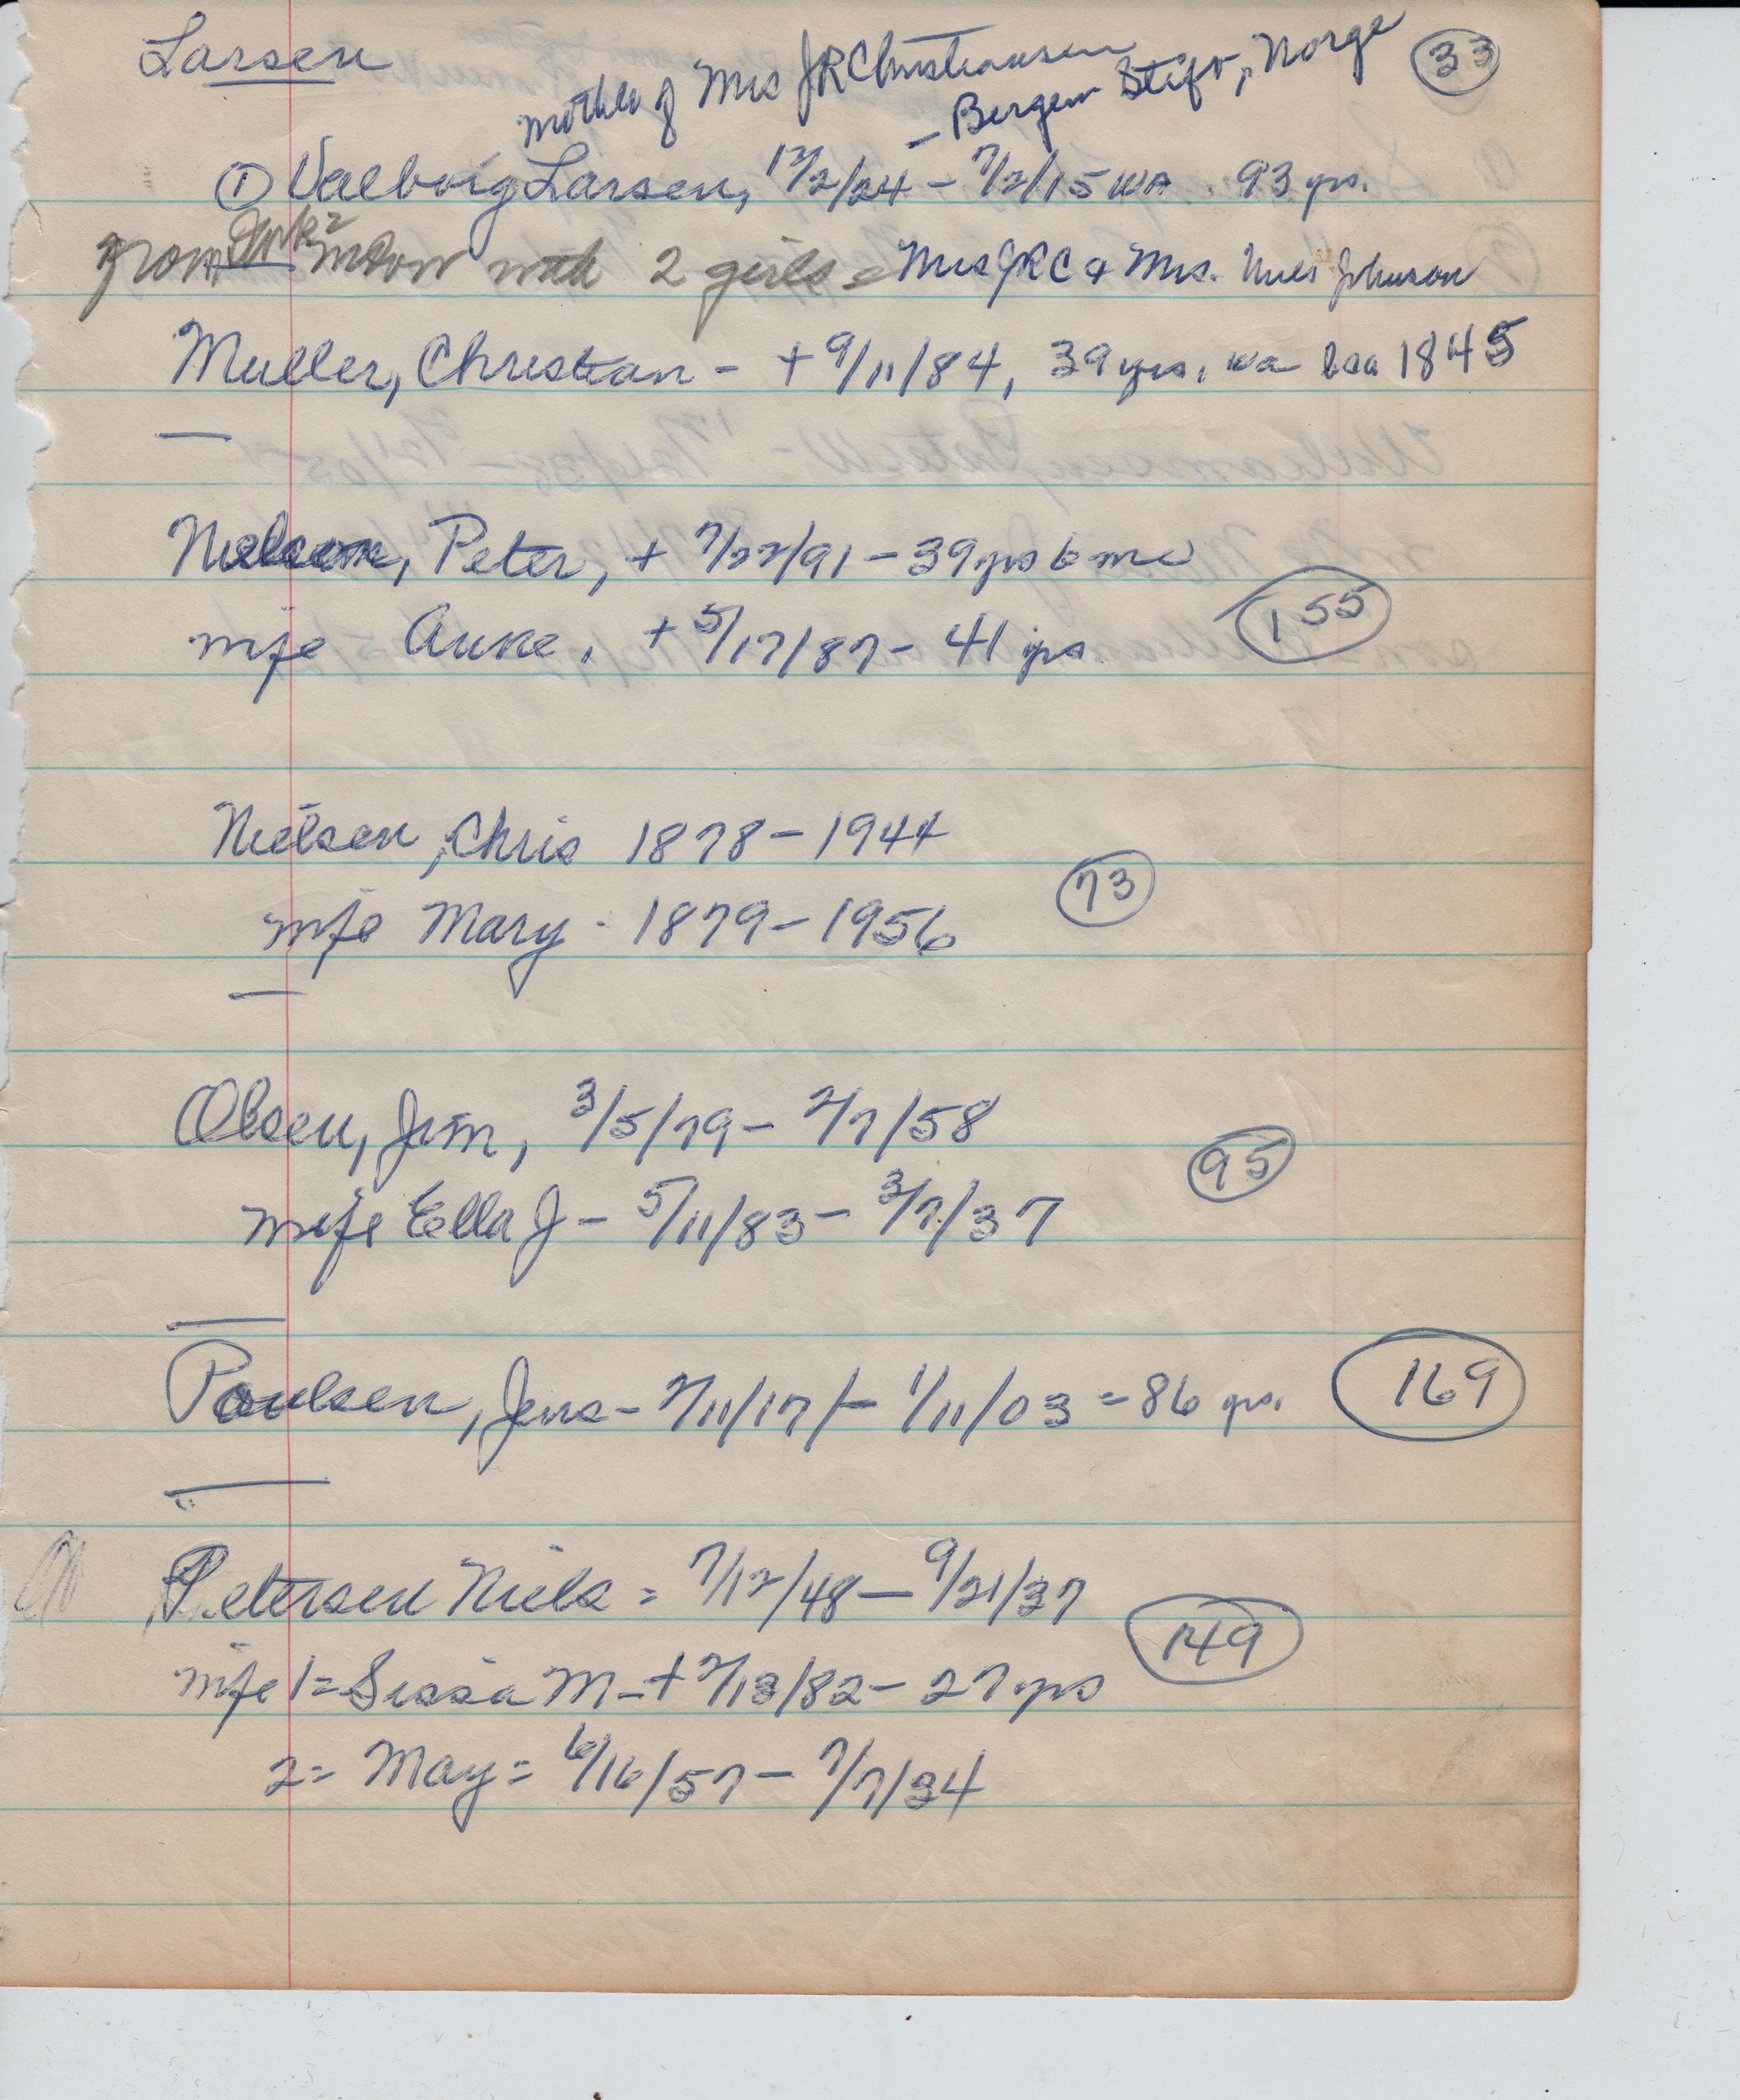 Larsen
mother of Mrs JR Christiansen
- Bergen Stift, Norge
33
① Valborg Larsen, 12/2/24 - 7/2/15 wa 93 yrs.
from widow with 2 girls = Mrs JRC & Mrs. Niels Johnson
Muller, Christian - + 9/11/84, 39 yrs, wa 1845
Nielsen, Peter, + 7/22/91 - 39 yrs 6 mo
wife Anne, + 5/17/87 - 41 yrs.
155
Nielsen, Chris 1878 - 1944
73
wife Mary - 1879 - 1956
Olsen, Jim, 3/5/79 - 2/7/58
95
wife Ella J - 5/11/83 - 3/7/37
Poulsen, Jens - 2/11/17 - 1/11/03 = 86 yrs.
169
Petersen Niels = 7/12/48 - 9/21/37
149
wife 1 = Sissa M - + 2/13/82 - 27 yrs
2 = May = 6/16/57 - 7/7/34